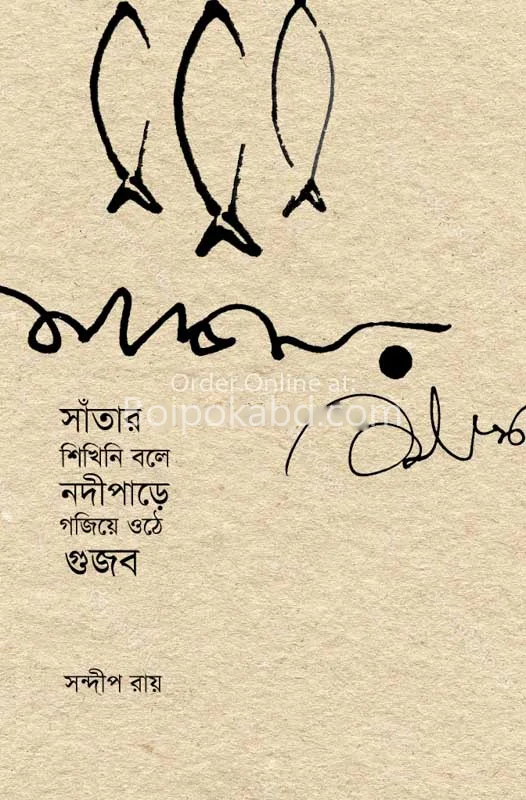 Order Online at:
Boipokabd.com
সাঁতার
শিখিনি বলে
নদীপাড়ে
গজিয়ে ওঠে
গুজব
সন্দীপ রায়